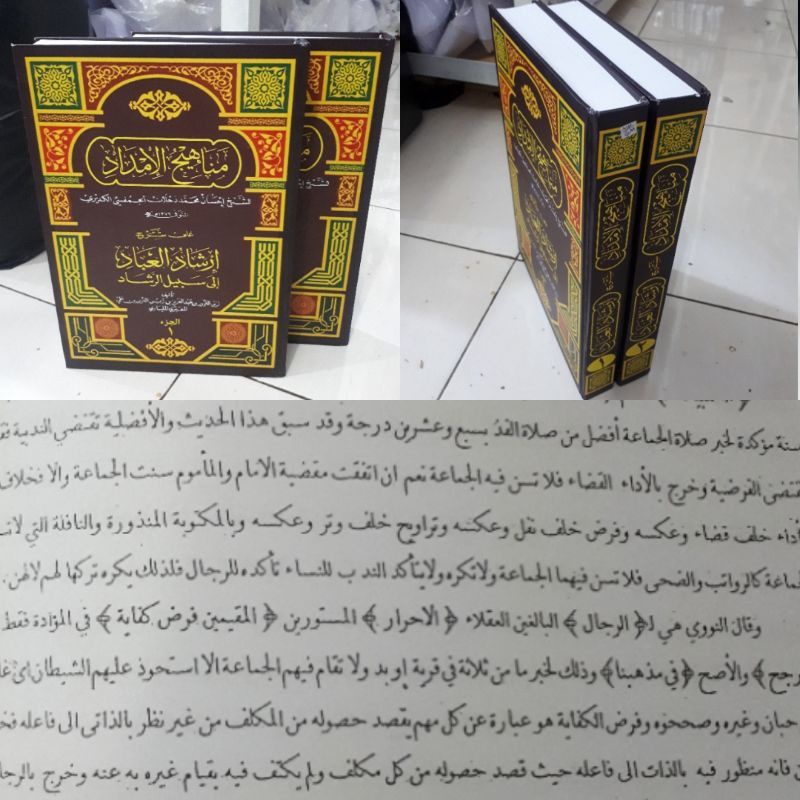 مناهج الإمداد
للشيخ إحسان محمد دحلان الجمفسي الكديري
على شرح
إرشاد العباد
إلى سبيل الرشاد
تأليف
الجزء
١
مناهج الإمداد
إرشاد العباد
١
مناهج الإمداد
إرشاد العباد
٢
سنة مؤكدة لخبر صلاة الجماعة أفضل من صلاة الفذ بسبع وعشرين درجة وقد سبق هذا الحديث والأفضلية تقتضى الندبية
تقتضى الفرضية وخرج بالأداء القضاء فلا تسن فيه الجماعة نعم ان اتفقت مقضية الامام والمأموم سنت الجماعة والا فخلاف
أداء خلف قضاء وعكسه وفرض خلف نفل وعكسه وتراويح خلف وتر وعكسه وبالمكتوبة المنذورة والنافلة التي
كالرواتب والضحى فلا تسن فيهما الجماعة ولا تكره ولا يتأكد الندب للنساء تأكده للرجال فلذلك يكره تركها لهم لا لهن.
وقال النووي هي ل﴿ الرجال ﴾ البالغين العقلاء ﴿ الاحرار ﴾ المستورين ﴿ المقيمين فرض كفاية ﴾ في المؤداة فقط
﴾ والأصح ﴿ في مذهبنا﴾ وذلك لخبر ما من ثلاثة في قرية او بدو لا تقام فيهم الجماعة الا استحوذ عليهم الشيطان اى
حبان وغيره وصححوه وفرض الكفاية هو عبارة عن كل مهم يقصد حصوله من المكلف من غير نظر بالذاتى الى فاعله
فانه منظور فيه بالذات الى فاعله حيث قصد حصوله من كل مكلف ولم يكتف فيه بقيام غيره به عنه وخرج